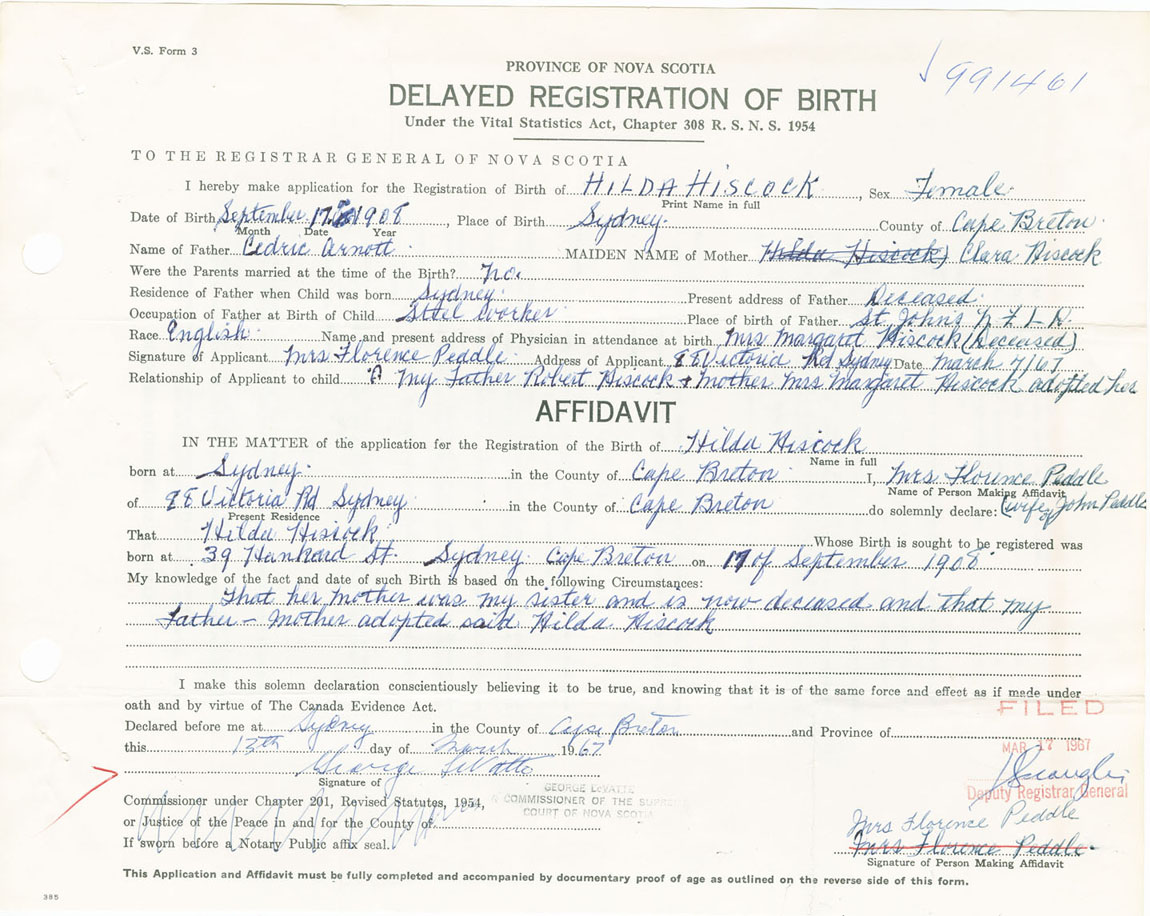 V.S. Form 3
991461
PROVINCE OF NOVA SCOTIA
DELAYED REGISTRATION OF BIRTH
Under the Vital Statistics Act, Chapter 308 R. S. N. S. 1954
TO THE REGISTRAR GENERAL OF NOVA SCOTIA
I hereby make application for the Registration of Birth of HILDA HISCOCK, Sex Female.
Print Name in full
Date of Birth September 17 1908, Place of Birth Sydney. County of Cape Breton.
Month Date Year
Name of Father Cedric Arnott. MAIDEN NAME of Mother Hilda Hiscock) Clara Hiscock
Were the Parents married at the time of the Birth? No.
Residence of Father when Child was born Sydney. Present address of Father Deceased.
Occupation of Father at Birth of Child Steel Worker Place of birth of Father St. John's N F L D.
Race English Name and present address of Physician in attendance at birth Mrs Margaret Hiscock (Deceased)
Signature of Applicant Mrs. Florence Peddle. Address of Applicant 88 Victoria Rd Sydney Date March 7/67
Relationship of Applicant to child My Father Robert Hiscock + Mother Mrs Margaret Hiscock adopted her
AFFIDAVIT
IN THE MATTER of the application for the Registration of the Birth of Hilda Hiscock
Name in full
born at Sydney. in the County of Cape Breton I, Mrs Florence Peddle
Name of Person Making Affidavit
of 88 Victoria Rd Sydney in the County of Cape Breton do solemnly declare: (wife of John Peddle
Present Residence
That Hilda Hiscock Whose Birth is sought to be registered was
born at 39 Hankard St. Sydney Cape Breton on 17 of September 1908
My knowledge of the fact and date of such Birth is based on the following Circumstances:
That her mother was my sister and is now deceased and that my
Father - Mother adopted said Hilda Hiscock
I make this solemn declaration conscientiously believing it to be true, and knowing that it is of the same force and effect as if made under
oath and by virtue of The Canada Evidence Act.
FILED
Declared before me at Sydney in the County of Cape Breton and Province of
this 13th day of March 1967
MAR 17 1967
George LeVatte
Signature of
Deputy Registrar General
GEORGE LeVATTE
Commissioner under Chapter 201, Revised Statutes, 1954,
A COMMISSIONER OF THE SUPREME
COURT OF NOVA SCOTIA
or Justice of the Peace in and for the County of
Mrs Florence Peddle
If sworn before a Notary Public affix seal.
Mrs Florence Peddle
Signature of Person Making Affidavit
This Application and Affidavit must be fully completed and accompanied by documentary proof of age as outlined on the reverse side of this form.
385